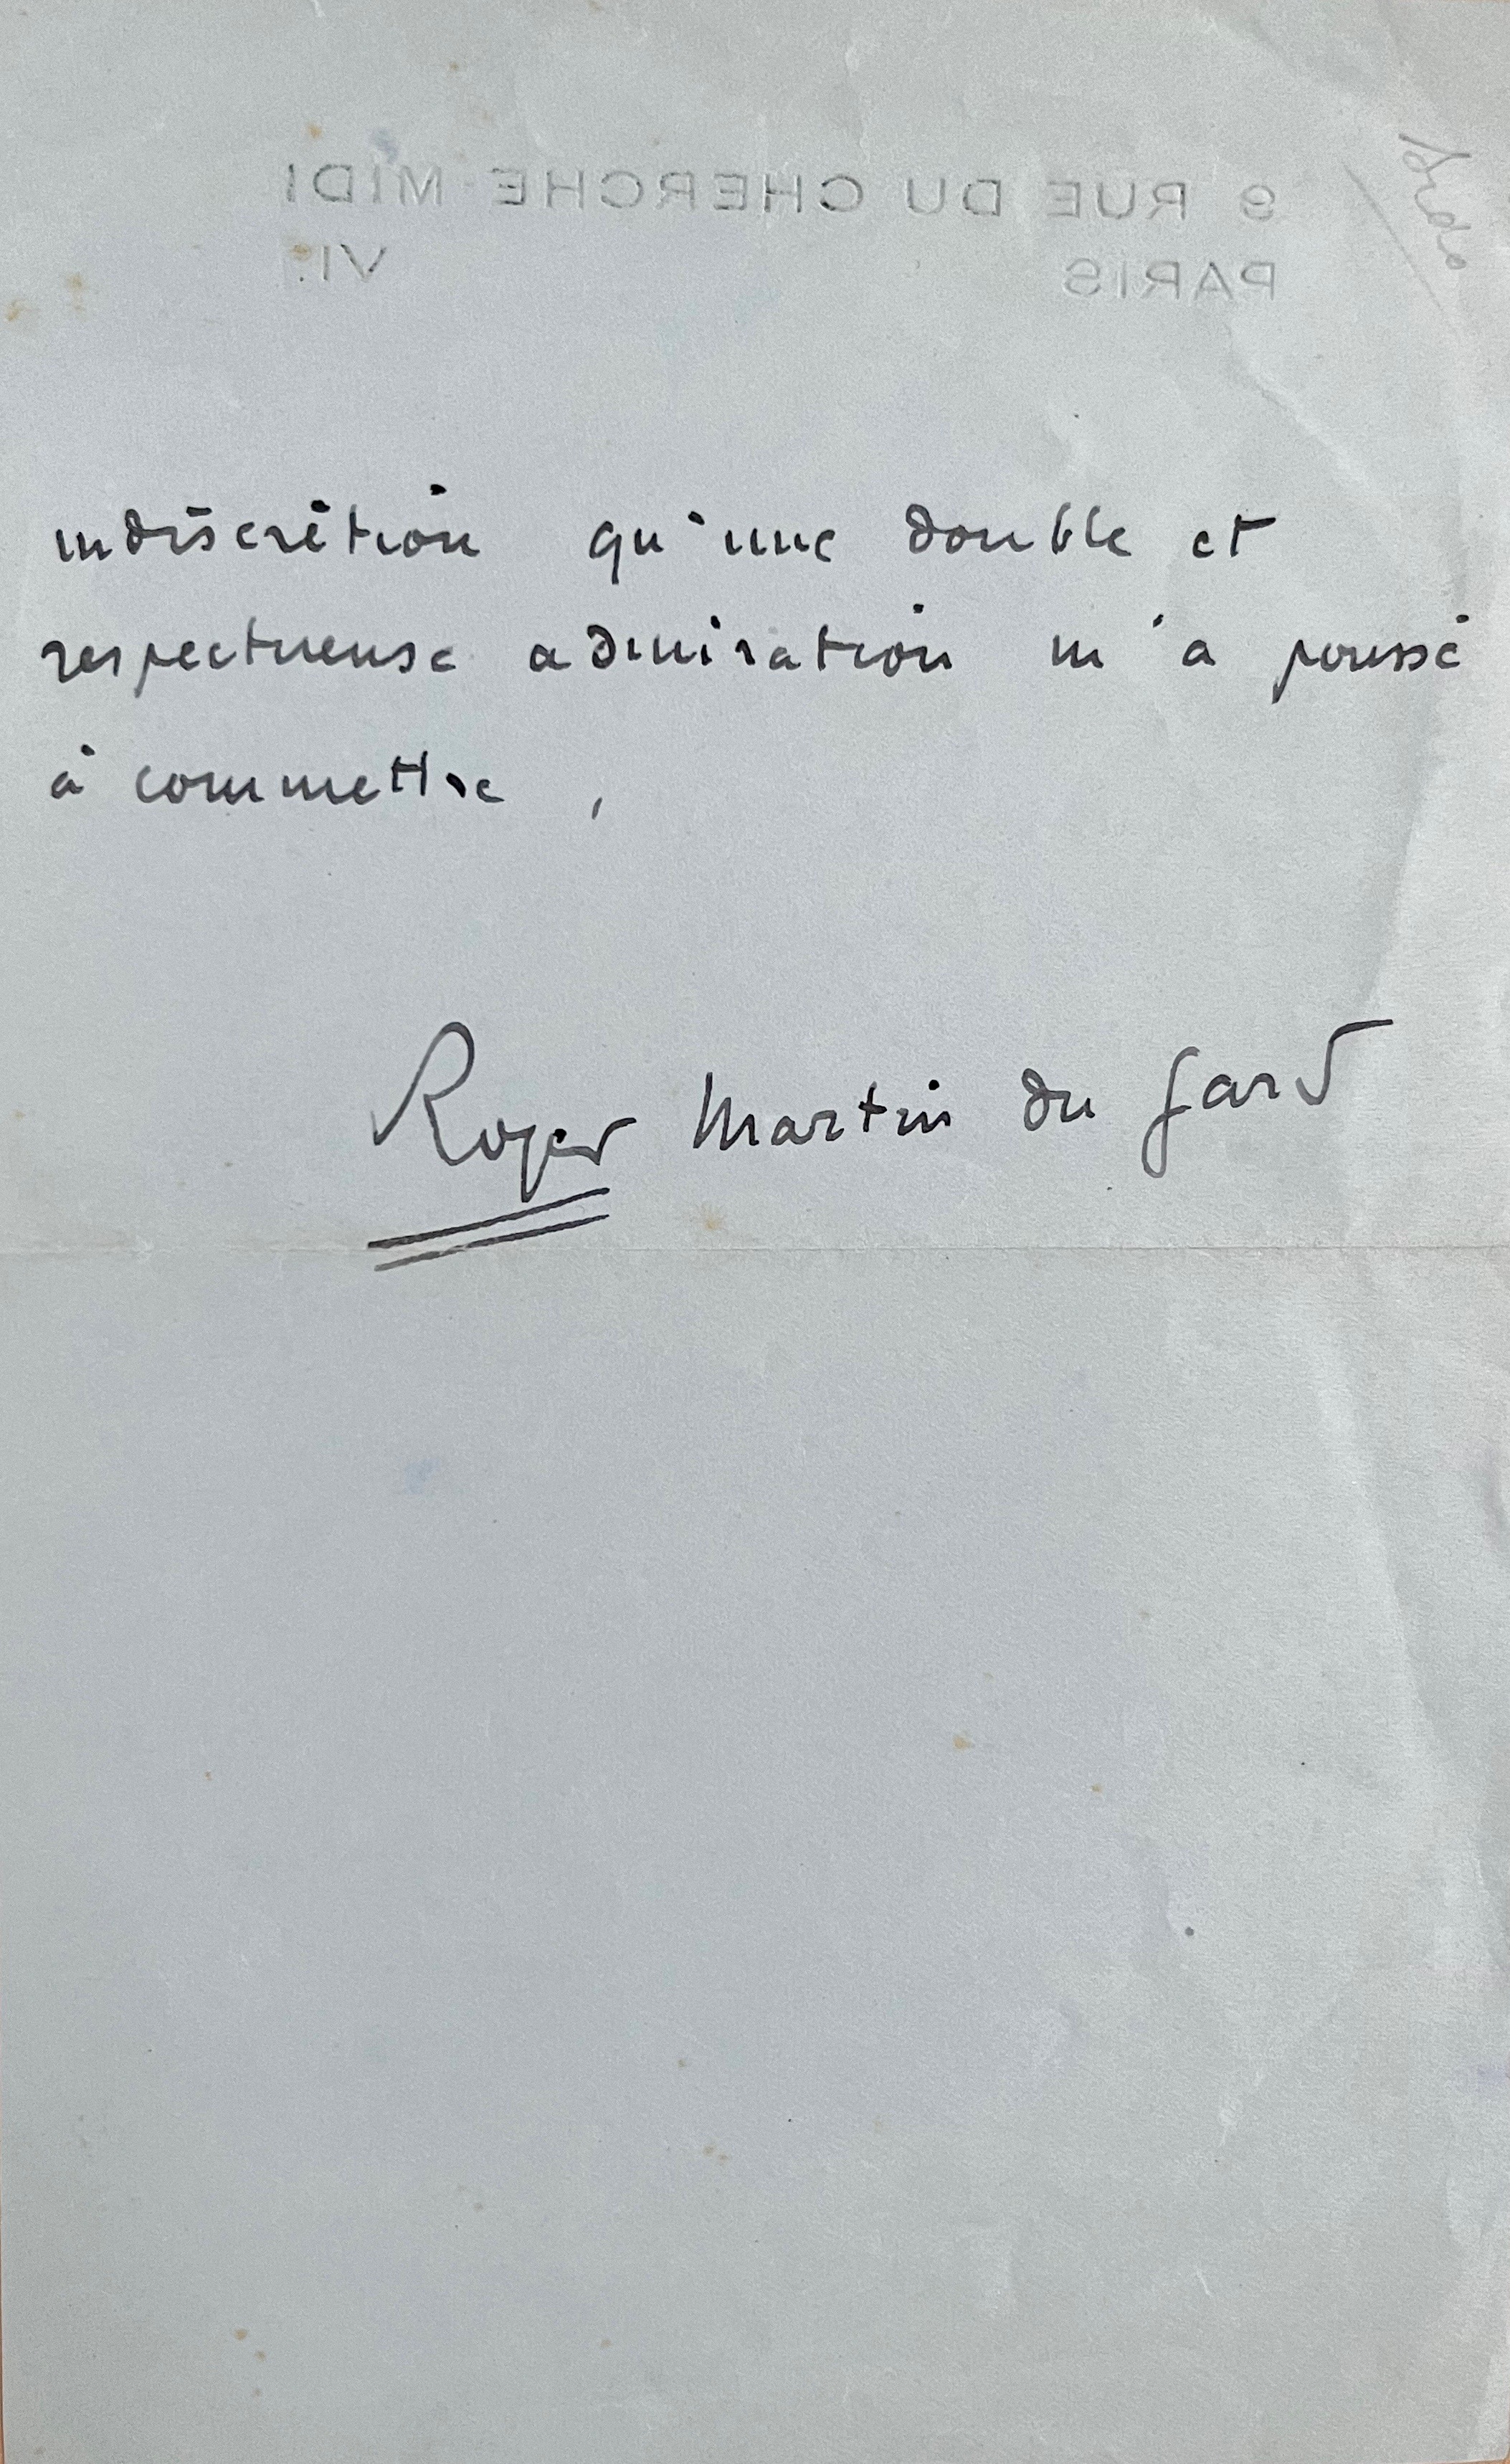 9 RUE DU CHERCHE MIDI
PARIS VI.
indiscrétion qu'une double et
respectueuse admiration m'a poussé
à commettre,
Roger Martin du Gard